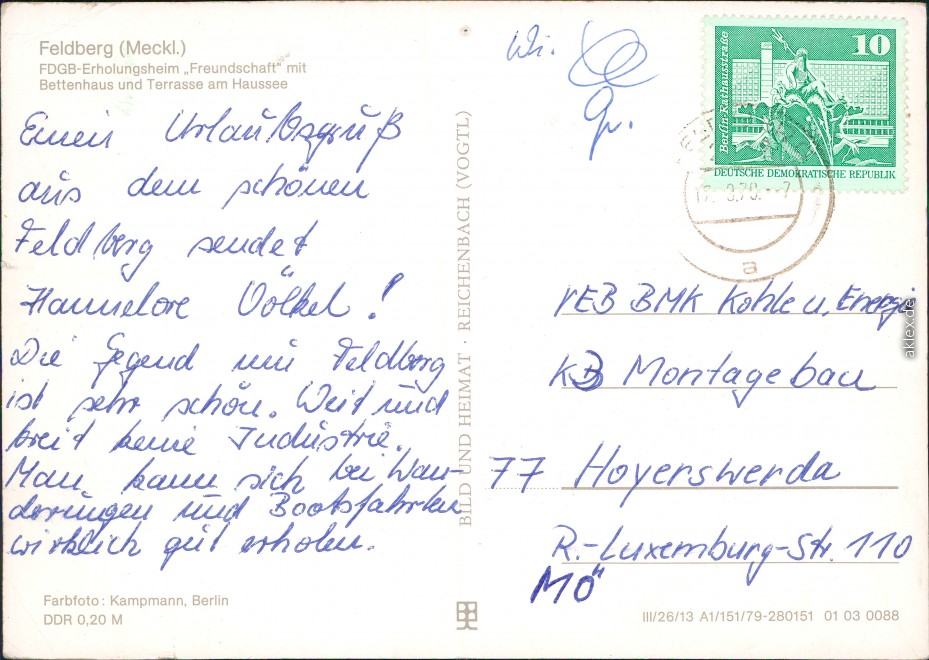 Feldberg (Meckl.)
FDGB-Erholungsheim „Freundschaft" mit
Bettenhaus und Terrasse am Haussee
Einen Urlaubsgruß
aus dem schönen
Feldberg sendet
Hannelore Völkel!
Die Gegend um Feldberg
ist sehr schön. Weit und
breit keine Industrie.
Man kann sich bei Wan-
derungen und Bootsfahrten
wirklich gut erholen.
Farbfoto: Kampmann, Berlin
DDR 0,20 M
BILD UND HEIMAT · REICHENBACH (VOGTL)
Wi.
Gr.
Berlin, Rathausstraße
10
DEUTSCHE DEMOKRATISCHE REPUBLIK
a
VEB BMK Kohle u. Energie
KB Montagebau
77 Hoyerswerda
R.-Luxemburg-Str. 110
MÖ
III/26/13 A1/151/79-280151 01 03 0088
aklex.de